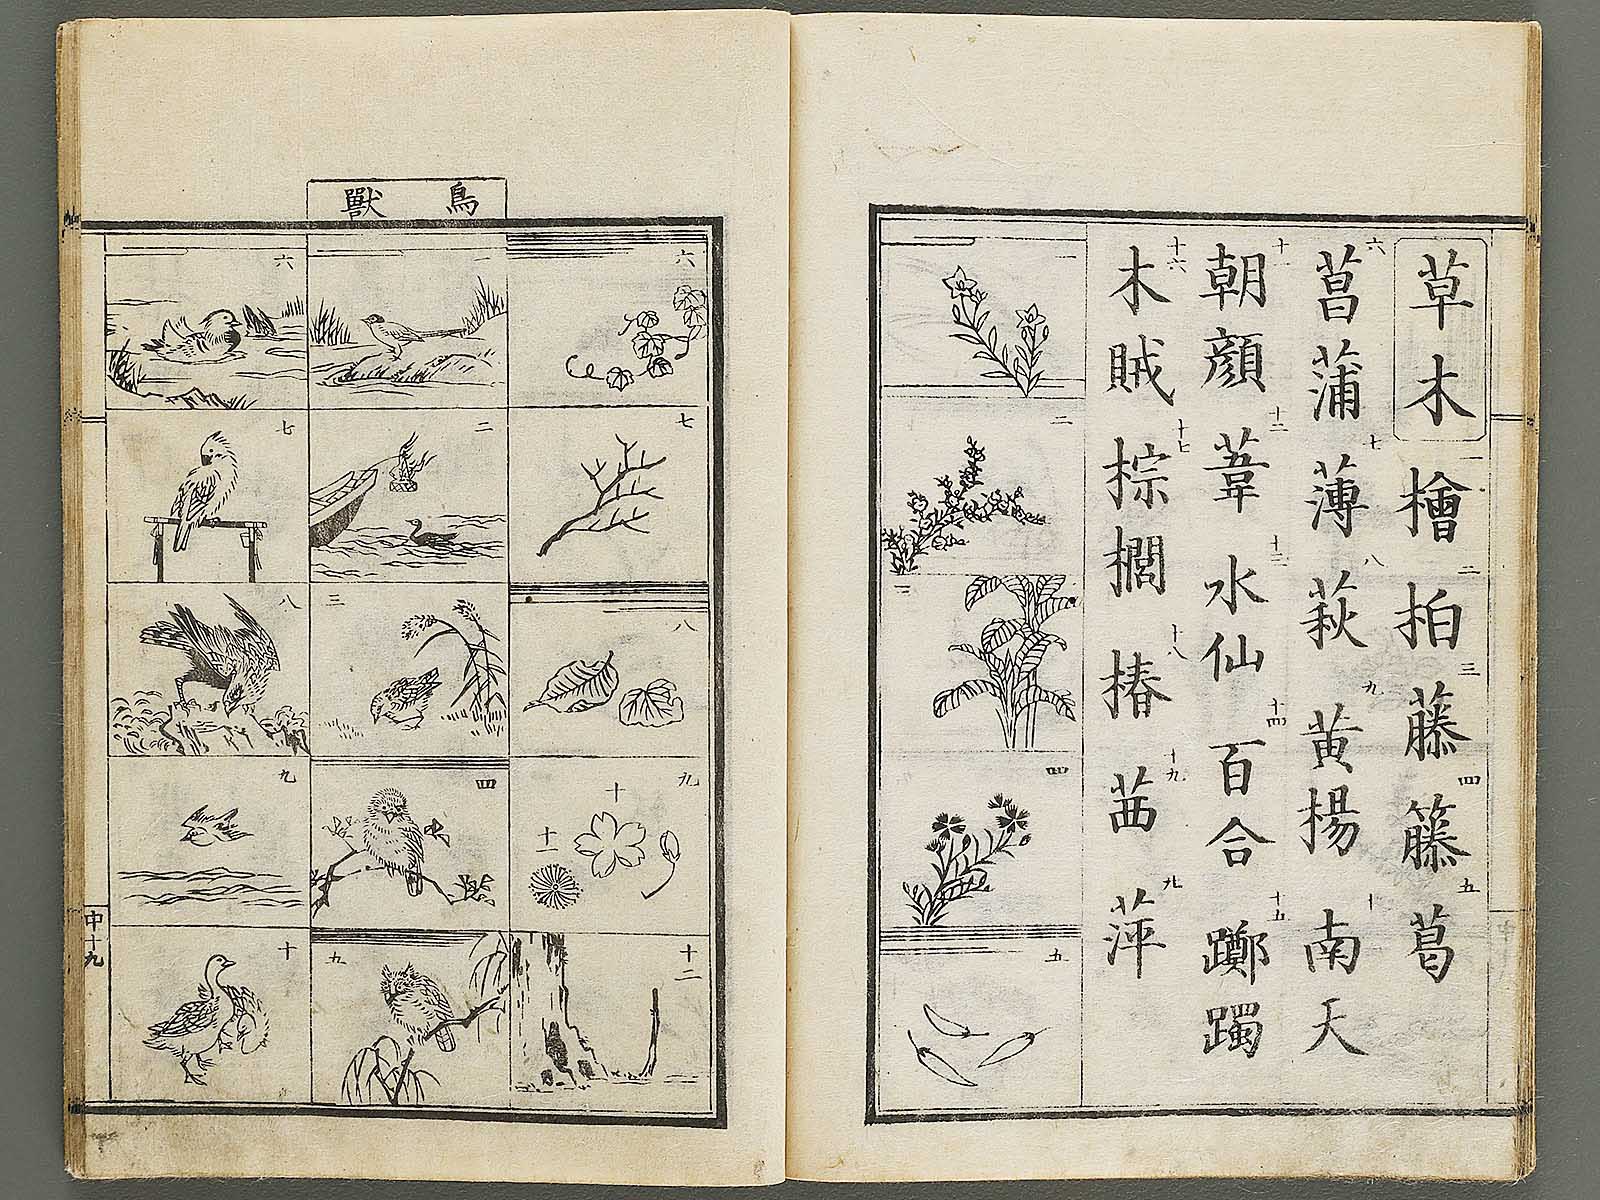 草木 檜 二 柏 三 藤 四 籐 五 葛
六 菖蒲 七 薄 八 萩 九 黄楊 十 南天
十一 朝顔 十二 葦 十三 水仙 十四 百合 十五 躑躅
十六 木賊 十七 棕櫚 十八 椿 十九 茜 廿 萍
二
三
四
五
六
七
八
九
十
十一
十二
鳥獸
二
三
四
五
六
七
八
九
十
中十九